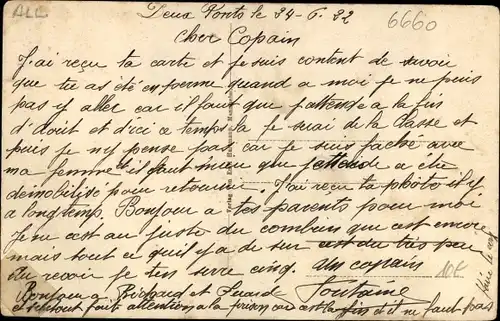 ALL
Deux Ponts le 24-6.22
6660
Cher Copain
J'ai reçu ta carte et je suis content de savoir
que tu as été en perme quand a moi je ne puis
pas y aller car il faut que j'attense a la fin
d'août et d'ici ce temps la je serai de la classe et
puis je n'y pense pas car je suis faché avec
ma femme il faut mieu que j'attende a être
démobilisé pour retourner. J'ai reçu ta photo il y
a longtemp. Bonjour a tes parents pour moi
Je ne at au juste du combien que c'est encore
mais tout ce qu'il y a de sur est du très peu
Au revoir je t'en serre cinq. ton copain
10€
Bonjour a et Fontaine
et surtout faits attention a la prison car c'est la fin et il ne faut pas
faire le con